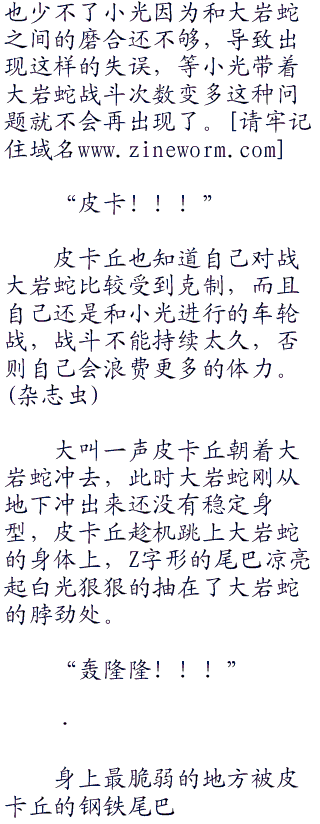 也少不了小光因为和大岩蛇
之间的磨合还不够，导致出
现这样的失误，等小光带着
大岩蛇战斗次数变多这种问
题就不会再出现了。[请牢记
住域名www.zineworm.com]
“皮卡！！！”
皮卡丘也知道自己对战
大岩蛇比较受到克制，而且
自己还是和小光进行的车轮
战，战斗不能持续太久，否
则自己会浪费更多的体力。
(杂志虫)
大叫一声皮卡丘朝着大
岩蛇冲去，此时大岩蛇刚从
地下冲出来还没有稳定身
型，皮卡丘趁机跳上大岩蛇
的身体上，Z字形的尾巴凉亮
起白光狠狠的抽在了大岩蛇
的脖劲处。
“轰隆隆！！！”
.
身上最脆弱的地方被皮
卡丘的钢铁尾巴